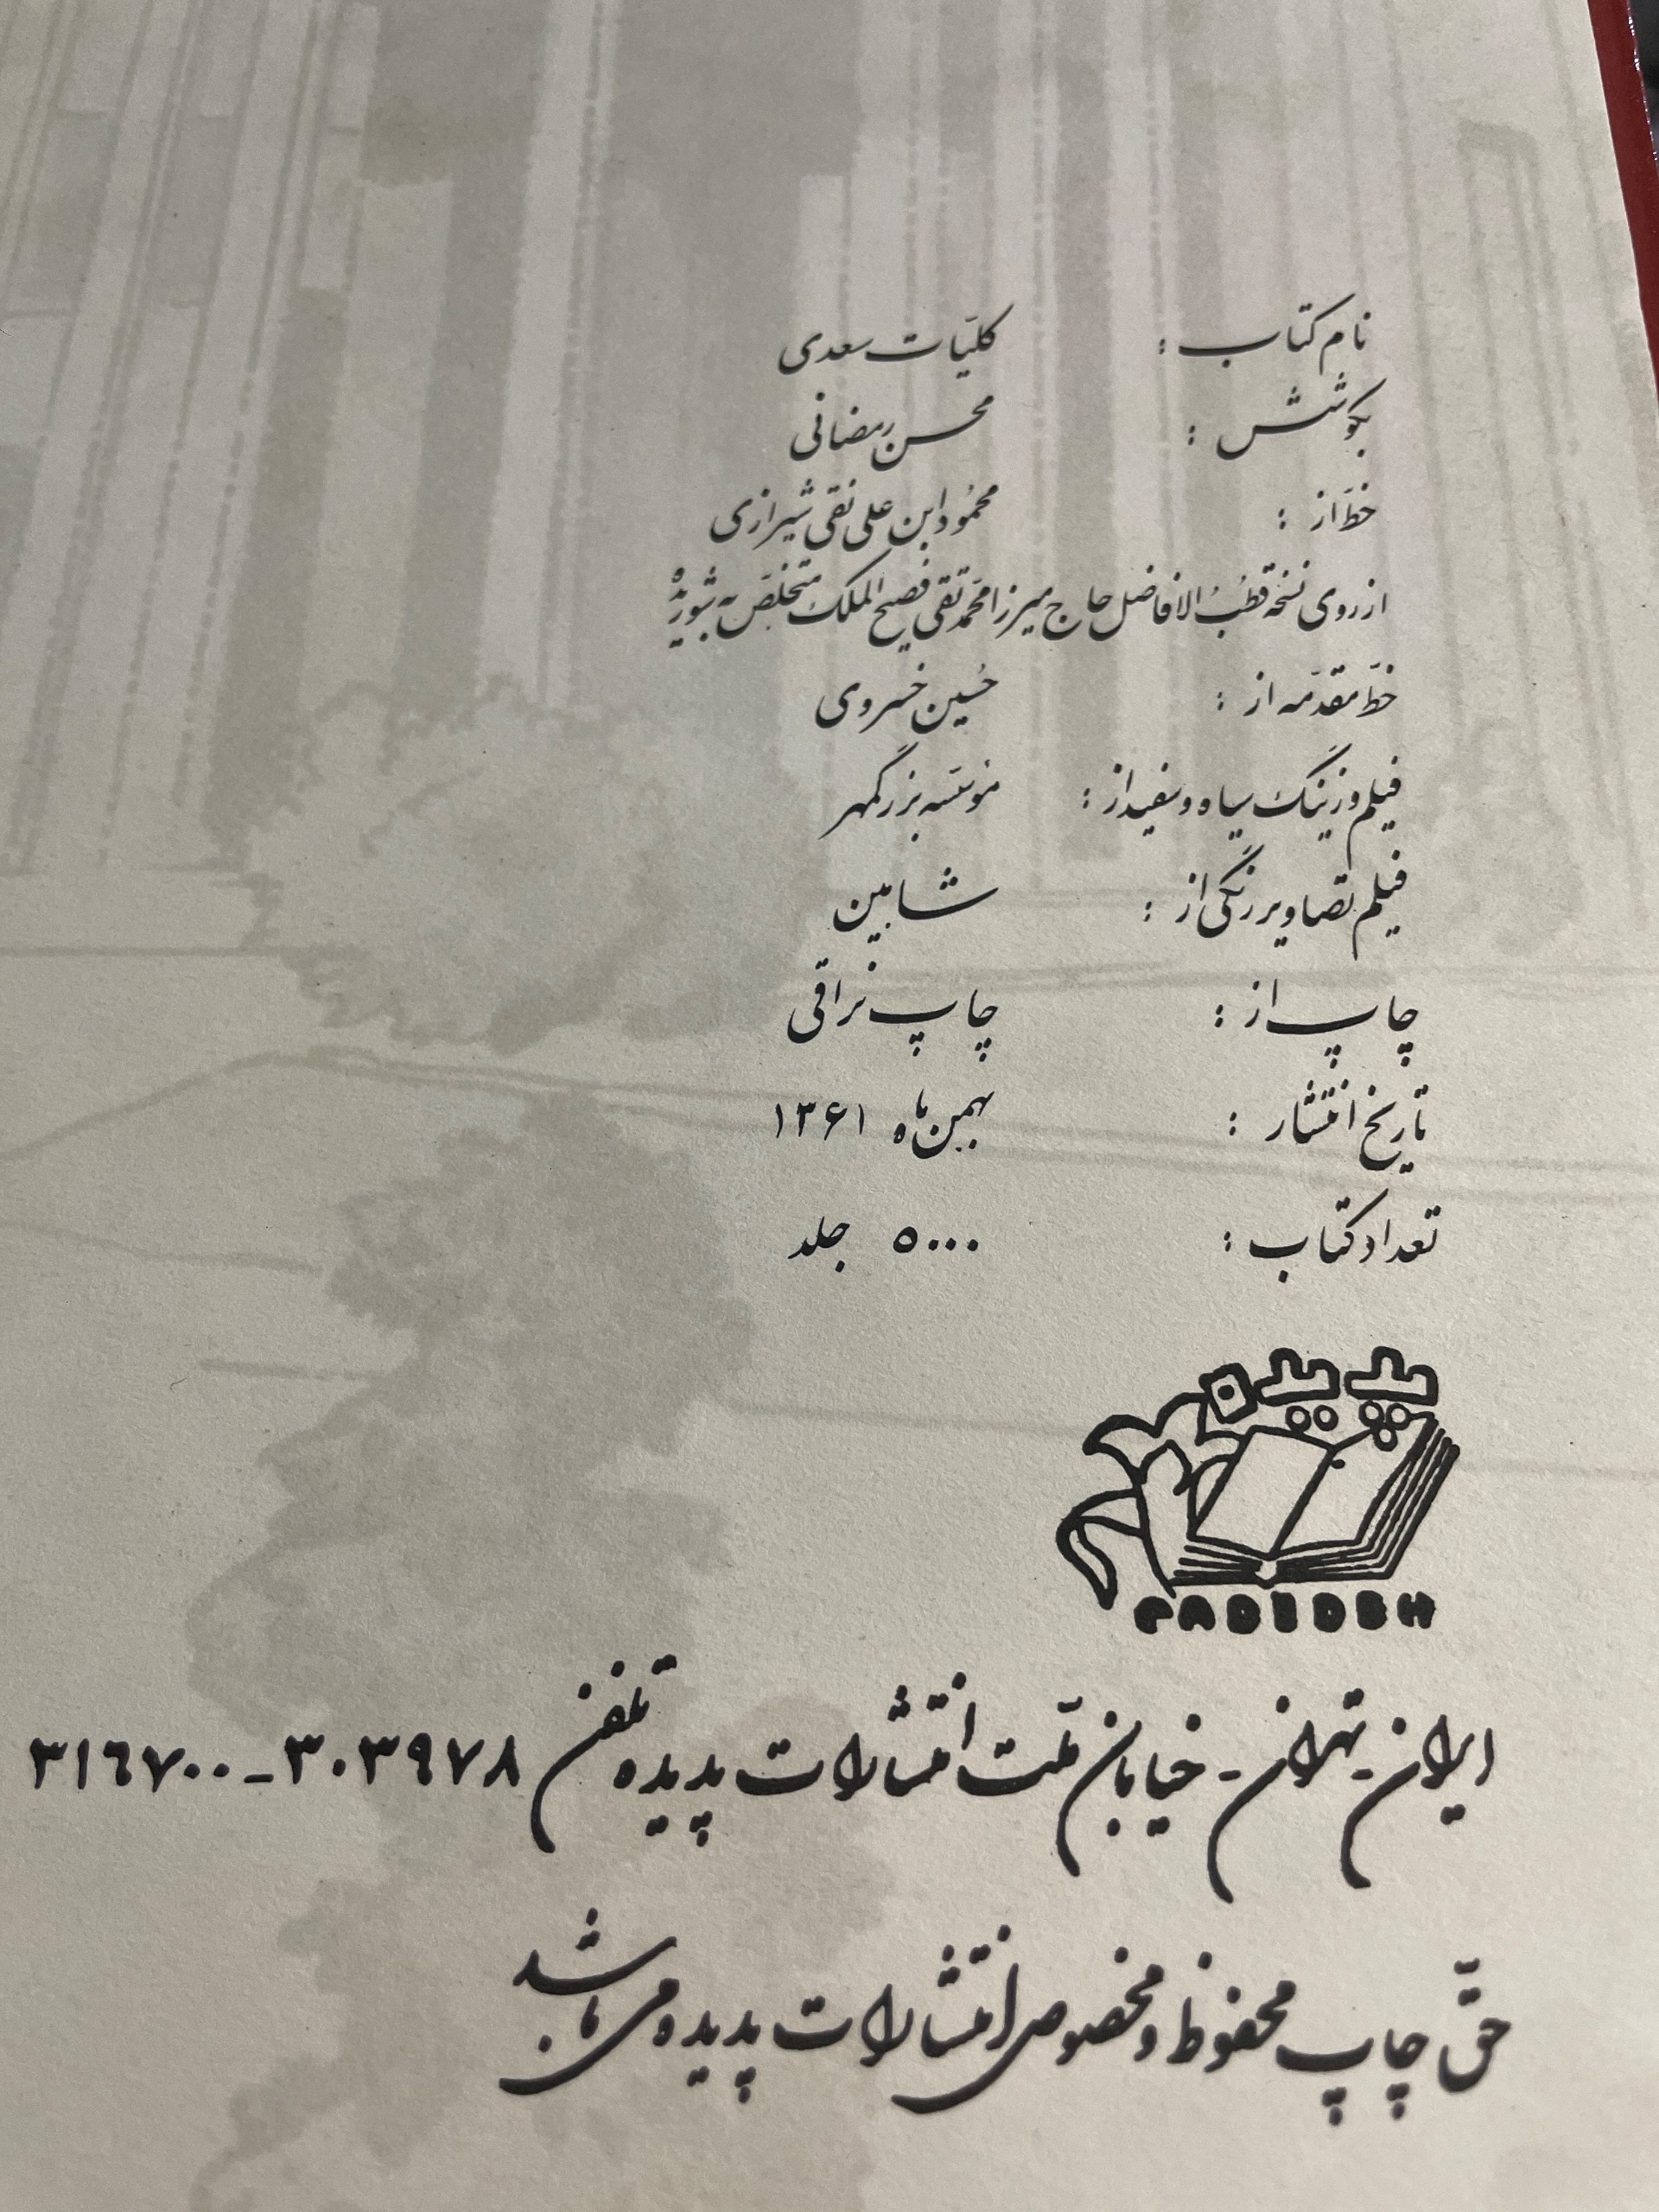 نام کتاب : کلیّات سعدی
بکوشش : محسن رمضانی
خطّ از : محمُود ابن علی نقی شیرازی
از روی نسخه قطبُ الافاضل حاج میرزا محمّد تقی فصیح الملک متخلّص به شوریدهْ
خطّ مقدّمه از : حُسین خسروی
فیلم و زینگ سیاه و سفید از : مؤسّسه بزرگمهر
فیلم تصاویر رنگی از : شاهین
چاپ از : چاپ نراقی
تاریخ انتشار : بهمن ماه ۱۳۶۱
تعداد کتاب : ۵۰۰۰ جلد
پدیده
PADIDEH
ایران - تهران - خیابان ملّت انتشارات پدیده تلفن ۳۰۳۹۷۸ - ۳۱۶۷۰۰
حقّ چاپ محفوظ و مخصوص انتشارات پدیده می باشد